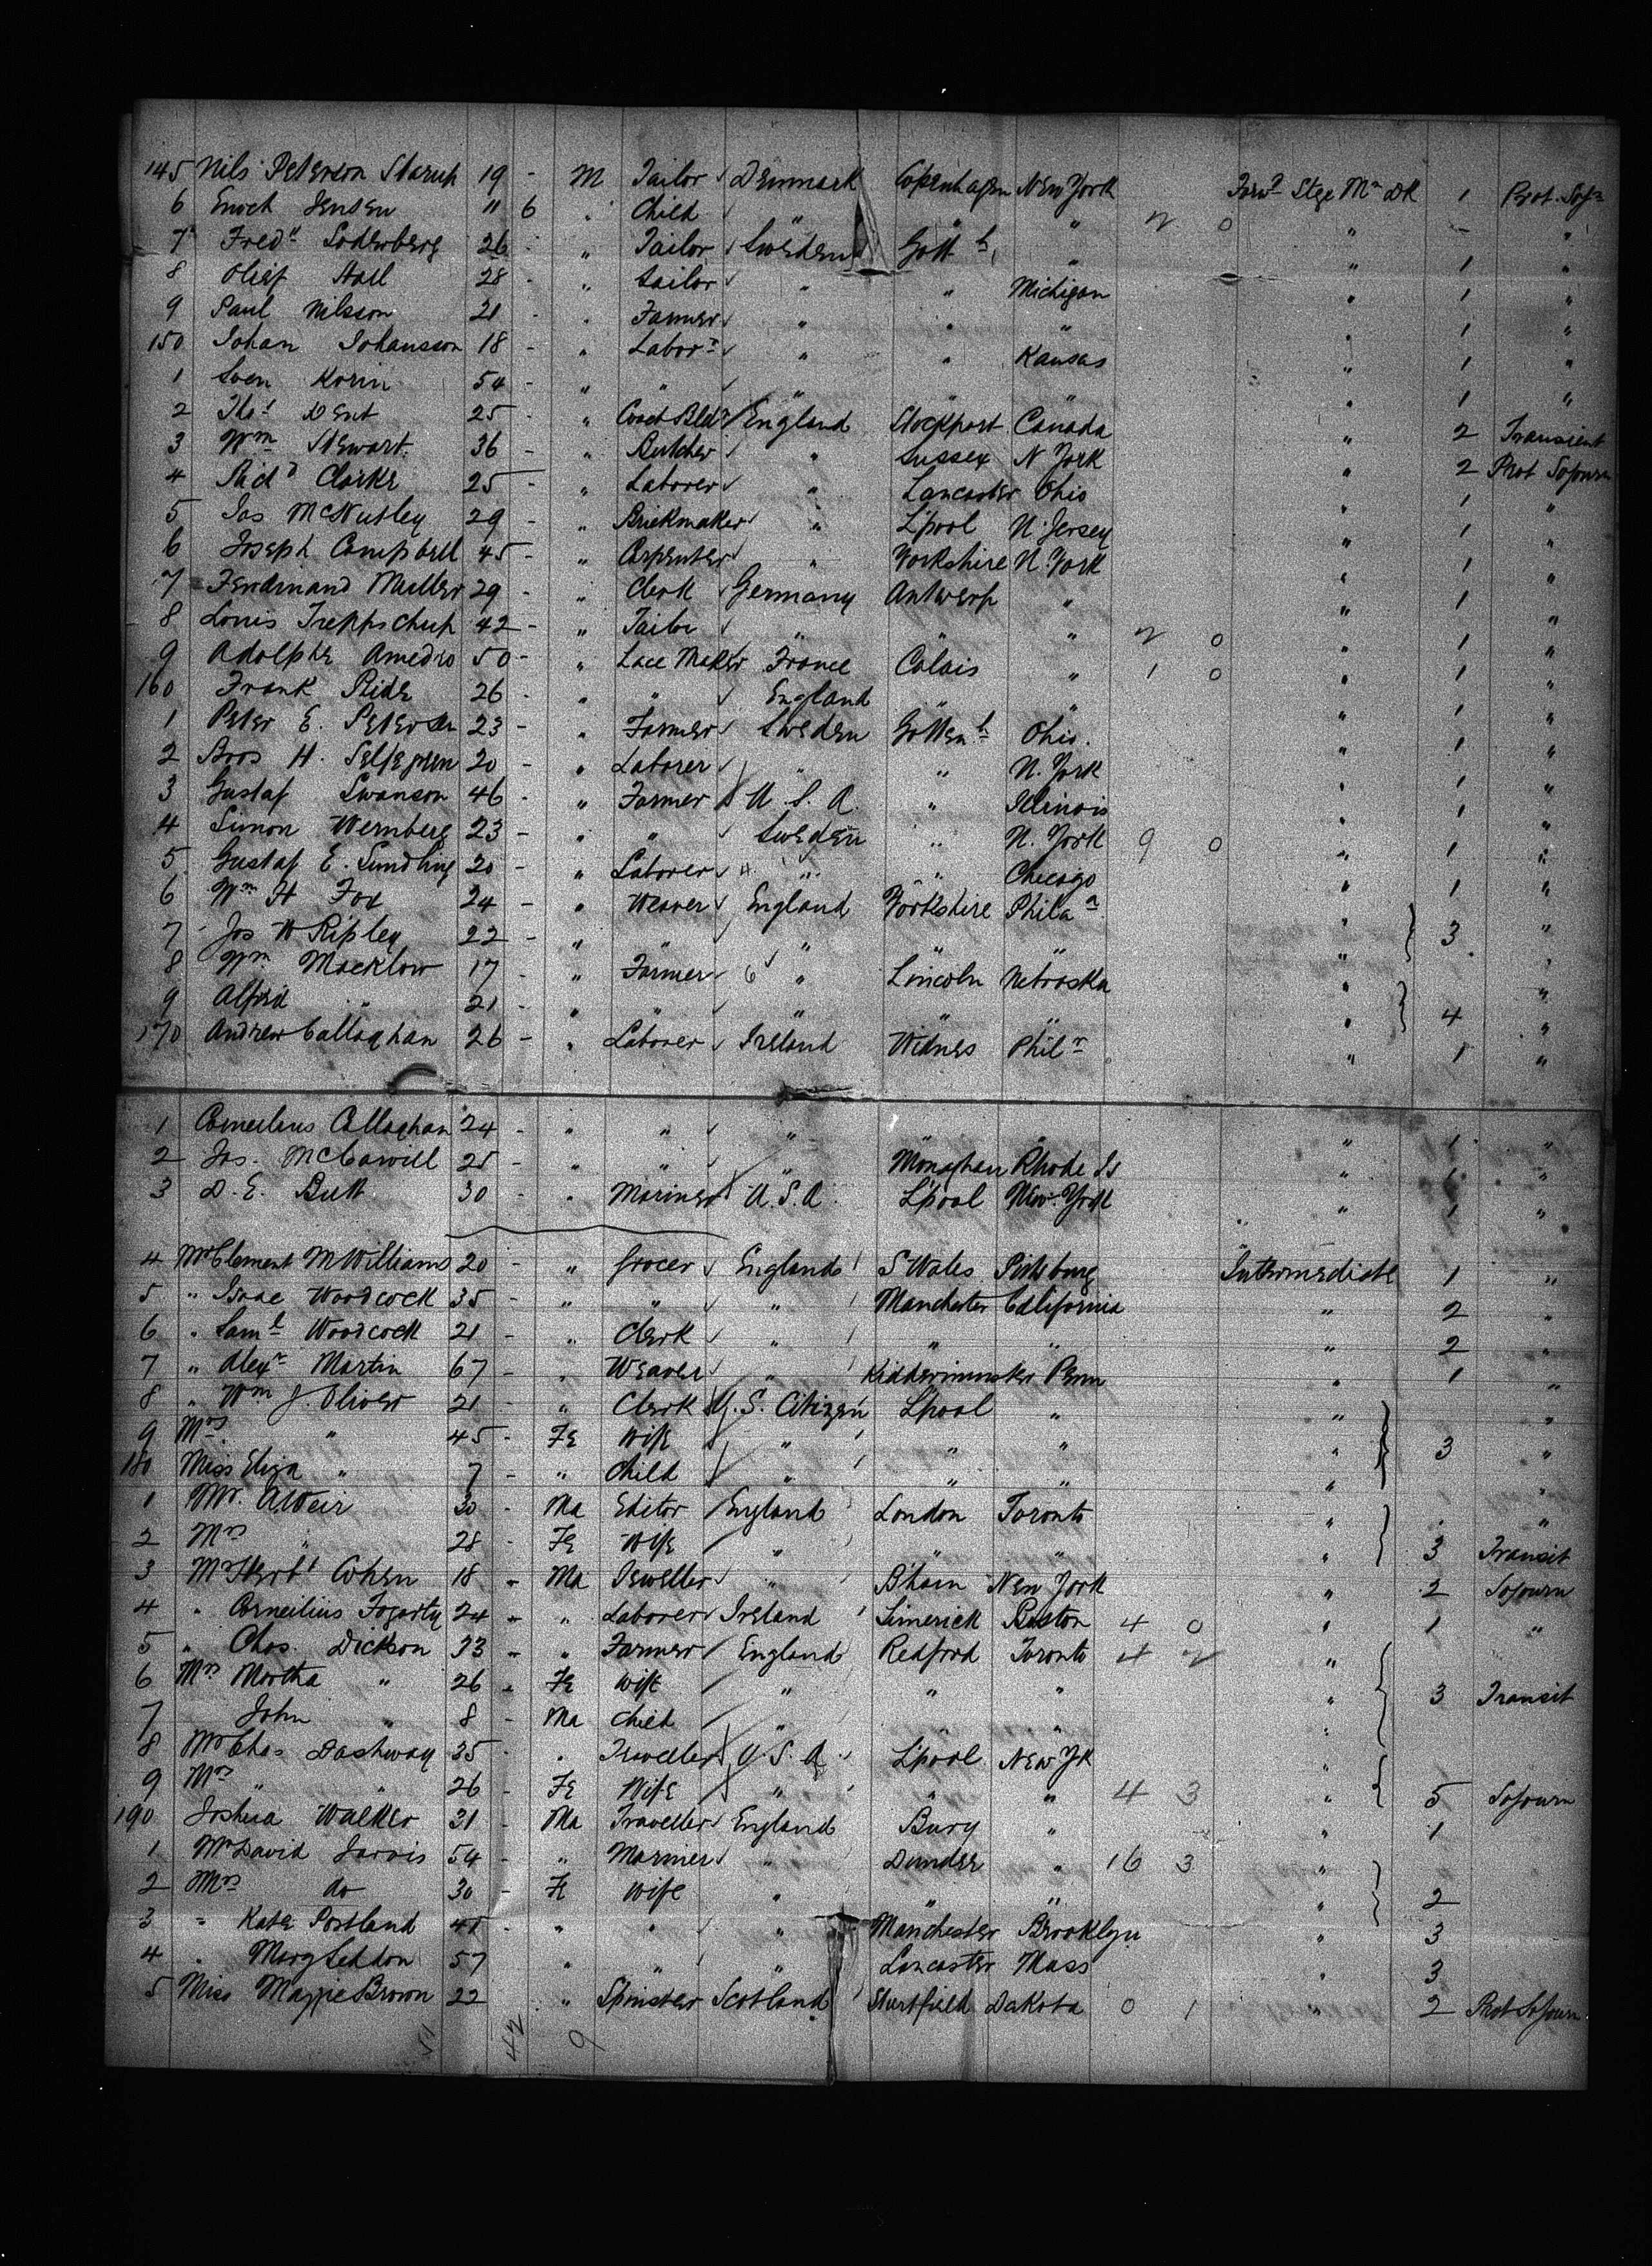 145 Nils Peterson Starup 19 - M Tailor Denmark Copenhagen New York Forwd Stge Mn Dk 1 Prot. Sojn
6 Enoch Jensen 11 6 " Child " " " 2 0 " - "
7 Fredk Soderberg 26 - " Tailor Sweden Gottbg " " 1 "
8 Olief Hall 28 - " Sailor " " Michigan " 1 "
9 Paul Nilsson 21 - " Farmer " " " " 1 "
150 Johan Johansson 18 - " Labor " " Kansas " 1 "
1 Sven Korin 54 - " " " " " " 1 "
2 Thos Dent 25 - " Coach Bldr England Stockport Canada " 2 Transient
3 Wm Stewart 36 - " Butcher " Sussex N York " 2 Prot Sojourn
4 Richd Clarke 25 - " Laborer " Lancaster Ohio " 1 "
5 Jas McNutley 29 - " Brickmaker " L'pool N. Jersey " 1 "
6 Joseph Campbell 45 - " Carpenter " Yorkshire N. York " 1 "
7 Ferdinand Muller 29 - " Clerk Germany Antwerp " " 1 "
8 Louis Treppschuh 42 - " Tailor " " " 2 0 " 1 "
9 Adolphe Amedro 50 - " Lace Maker France Calais " 1 0 " 1 "
160 Frank Ride 26 - " " England " " " 1 "
1 Peter E. Petersen 23 - " Farmer Sweden Gottenbg Ohio. " 1 "
2 H. 20 - " Laborer " " N. York " 1 "
3 Gustaf Swanson 46 - " Farmer U.S.A. " Illinois " 1 "
4 Simon Wernberg 23 - " " Sweden " N. York 9 0 " 1 "
5 Gustaf E. Sundling 20 - " Laborer " " Chicago " 1 "
6 Wm H Fox 24 - " Weaver England Yorkshire Phila " "
7 Jos W Ripley 22 - " " " " " " 3 "
8 Wm Macklow 17 - " Farmer " Lincoln Nebraska " "
9 Alfred " 21 - " " " " " " 4 "
170 Andrew Callaghan 26 - " Laborer Ireland Widnes Phil " 1 "
1 Corneilius Callaghan 24 - " " " " " " 1 "
2 Jas. McCarvill 25 - " " " Monaghan Rhode Is " 1 "
3 D. E. Butt 30 - " Mariner U.S.A. L'pool New York " 1 "
4 Mr Clement McWilliams 20 - " Grocer England S Wales Pittsburg Intermediate 1 "
5 " Isaac Woodcock 35 - " " " Manchester California " 2 "
6 " Saml Woodcock 21 - " Clerk " " " " 2 "
7 " Alexr Martin 67 - " Weaver " Kidderminster Penn " 1 "
8 " Wm J. Oliver 21 - " Clerk U.S. Citizen L'pool " " "
9 Mrs " 45 - Fe Wife " " " " 3 "
180 Miss Eliza " 7 - " Child " " " " "
1 Mr. A Weir 30 - Ma Editor England London Toronto " "
2 Mrs " 28 - Fe Wife " " " " 3 Transit
3 Mr Herbt Cohen 18 - Ma Jeweller " B'ham New York " 2 Sojourn
4 " Corneilius Fogarty 24 - " Laborer Ireland Limerick Boston 4 0 " 1 "
5 " Chas. Dickson 33 - " Farmer England Redford Toronto 4 2 "
6 Mrs Martha " 26 - Fe Wife " " " " 3 Transit
7 John " 8 - Ma Child " " " "
8 Mr Chas Dashway 35 - " Traveller U.S.A. L'pool New Yk "
9 Mrs " " 26 - Fe Wife " " " 4 3 " 5 Sojourn
190 Joshua Walker 31 - Ma Traveller England Bury " " 1
1 Mr David Jarvis 54 - " Mariner " Dundee " 16 3 "
2 Mrs do 30 - Fe Wife " " " " 2
3 " Kate Portland 45 - " " " Manchester Brooklyn " 3
4 " Mary Seddon 57 " " " Lancaster Mass " 3
5 Miss Maggie Brown 22 " Spinster Scotland Dakota 0 1 " 2 Prot Sojourn
51 42 9